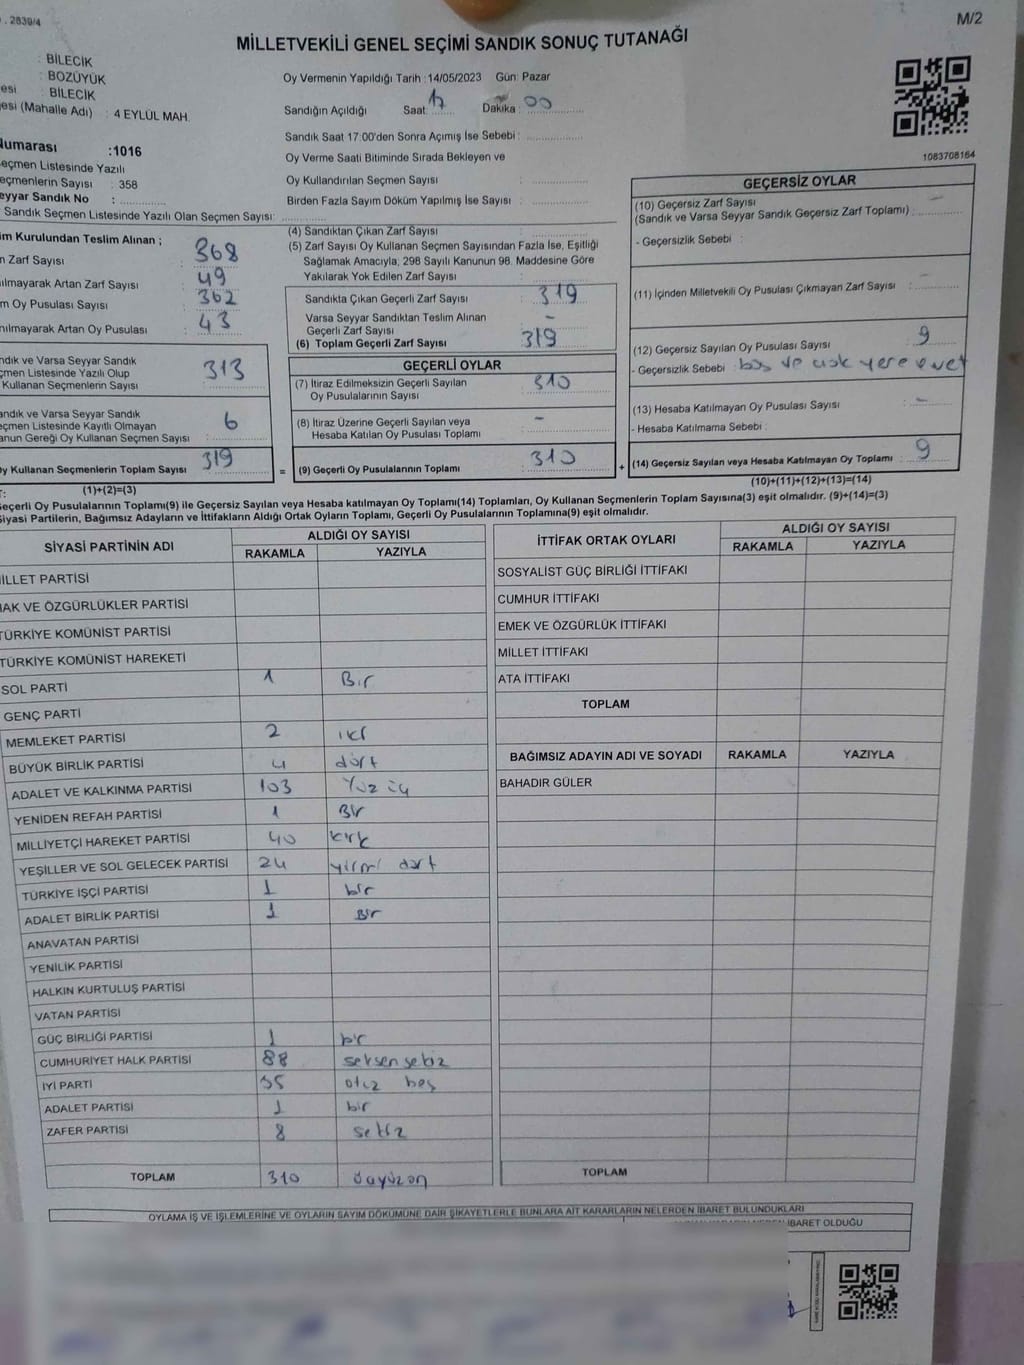 . 2839/4
M/2
MİLLETVEKİLİ GENEL SEÇİMİ SANDIK SONUÇ TUTANAĞI
: BİLECİK
: BOZÜYÜK
esi : BİLECİK
esi (Mahalle Adı) : 4 EYLÜL MAH.
Numarası :1016
eçmen Listesinde Yazılı
eçmenlerin Sayısı : 358
eyyar Sandık No :
Sandık Seçmen Listesinde Yazılı Olan Seçmen Sayısı:
Oy Vermenin Yapıldığı Tarih :14/05/2023 Gün: Pazar
Sandığın Açıldığı Saat: 17 Dakika : 00
Sandık Saat 17:00'den Sonra Açımış İse Sebebi :
Oy Verme Saati Bitiminde Sırada Bekleyen ve
Oy Kullandırılan Seçmen Sayısı :
Birden Fazla Sayım Döküm Yapılmış İse Sayısı :
1083708164
im Kurulundan Teslim Alınan ;
n Zarf Sayısı : 368
ılmayarak Artan Zarf Sayısı : 49
m Oy Pusulası Sayısı : 362
nılmayarak Artan Oy Pusulası : 43
ndık ve Varsa Seyyar Sandık
çmen Listesinde Yazılı Olup
Kullanan Seçmenlerin Sayısı : 313
andık ve Varsa Seyyar Sandık
eçmen Listesinde Kayıtlı Olmayan
anun Gereği Oy Kullanan Seçmen Sayısı : 6
Oy Kullanan Seçmenlerin Toplam Sayısı : 319
(1)+(2)=(3)
(4) Sandıktan Çıkan Zarf Sayısı :
(5) Zarf Sayısı Oy Kullanan Seçmen Sayısından Fazla İse, Eşitliği
Sağlamak Amacıyla, 298 Sayılı Kanunun 98. Maddesine Göre
Yakılarak Yok Edilen Zarf Sayısı :
Sandıkta Çıkan Geçerli Zarf Sayısı : 319
Varsa Seyyar Sandıktan Teslim Alınan
Geçerli Zarf Sayısı : -
(6) Toplam Geçerli Zarf Sayısı : 319
GEÇERLİ OYLAR
(7) İtiraz Edilmeksizin Geçerli Sayılan
Oy Pusulalarının Sayısı : 310
(8) İtiraz Üzerine Geçerli Sayılan veya
Hesaba Katılan Oy Pusulası Toplamı : -
= (9) Geçerli Oy Pusulalarının Toplamı : 310
GEÇERSİZ OYLAR
(10) Geçersiz Zarf Sayısı
(Sandık ve Varsa Seyyar Sandık Geçersiz Zarf Toplamı) : -
- Geçersizlik Sebebi :
(11) İçinden Milletvekili Oy Pusulası Çıkmayan Zarf Sayısı : -
(12) Geçersiz Sayılan Oy Pusulası Sayısı : 9
- Geçersizlik Sebebi : boş ve çok yere evet
(13) Hesaba Katılmayan Oy Pusulası Sayısı : -
- Hesaba Katılmama Sebebi :
+ (14) Geçersiz Sayılan veya Hesaba Katılmayan Oy Toplamı : 9
(10)+(11)+(12)+(13)=(14)
T:
Geçerli Oy Pusulalarının Toplamı(9) ile Geçersiz Sayılan veya Hesaba katılmayan Oy Toplamı(14) Toplamları, Oy Kullanan Seçmenlerin Toplam Sayısına(3) eşit olmalıdır. (9)+(14)=(3)
Siyasi Partilerin, Bağımsız Adayların ve İttifakların Aldığı Ortak Oyların Toplamı, Geçerli Oy Pusulalarının Toplamına(9) eşit olmalıdır.
SİYASİ PARTİNİN ADI
ALDIĞI OY SAYISI
RAKAMLA YAZIYLA
İLLET PARTİSİ
HAK VE ÖZGÜRLÜKLER PARTİSİ
TÜRKİYE KOMÜNİST PARTİSİ
TÜRKİYE KOMÜNİST HAREKETİ
SOL PARTİ 1 Bir
GENÇ PARTİ
MEMLEKET PARTİSİ 2 iki
BÜYÜK BİRLİK PARTİSİ 4 dört
ADALET VE KALKINMA PARTİSİ 103 Yüz üç
YENİDEN REFAH PARTİSİ 1 Bir
MİLLİYETÇİ HAREKET PARTİSİ 40 kırk
YEŞİLLER VE SOL GELECEK PARTİSİ 24 yirmi dört
TÜRKİYE İŞÇİ PARTİSİ 1 bir
ADALET BİRLİK PARTİSİ 1 Bir
ANAVATAN PARTİSİ
YENİLİK PARTİSİ
HALKIN KURTULUŞ PARTİSİ
VATAN PARTİSİ
GÜÇ BİRLİĞİ PARTİSİ 1 bir
CUMHURİYET HALK PARTİSİ 88 seksen sekiz
İYİ PARTİ 35 otuz beş
ADALET PARTİSİ 1 bir
ZAFER PARTİSİ 8 sekiz
TOPLAM 310 üçyüzon
İTTİFAK ORTAK OYLARI
ALDIĞI OY SAYISI
RAKAMLA YAZIYLA
SOSYALİST GÜÇ BİRLİĞİ İTTİFAKI
CUMHUR İTTİFAKI
EMEK VE ÖZGÜRLÜK İTTİFAKI
MİLLET İTTİFAKI
ATA İTTİFAKI
TOPLAM
BAĞIMSIZ ADAYIN ADI VE SOYADI RAKAMLA YAZIYLA
BAHADIR GÜLER
TOPLAM
OYLAMA İŞ VE İŞLEMLERİNE VE OYLARIN SAYIM DÖKÜMÜNE DAİR ŞİKAYETLERLE BUNLARA AİT KARARLARIN NELERDEN İBARET BULUNDUKLARI
İBARET OLDUĞU